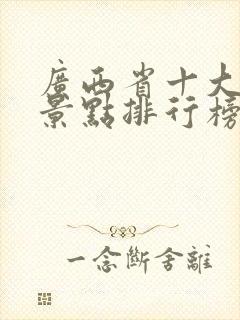 廣西省十大
景點排行榜
一念斷舍離